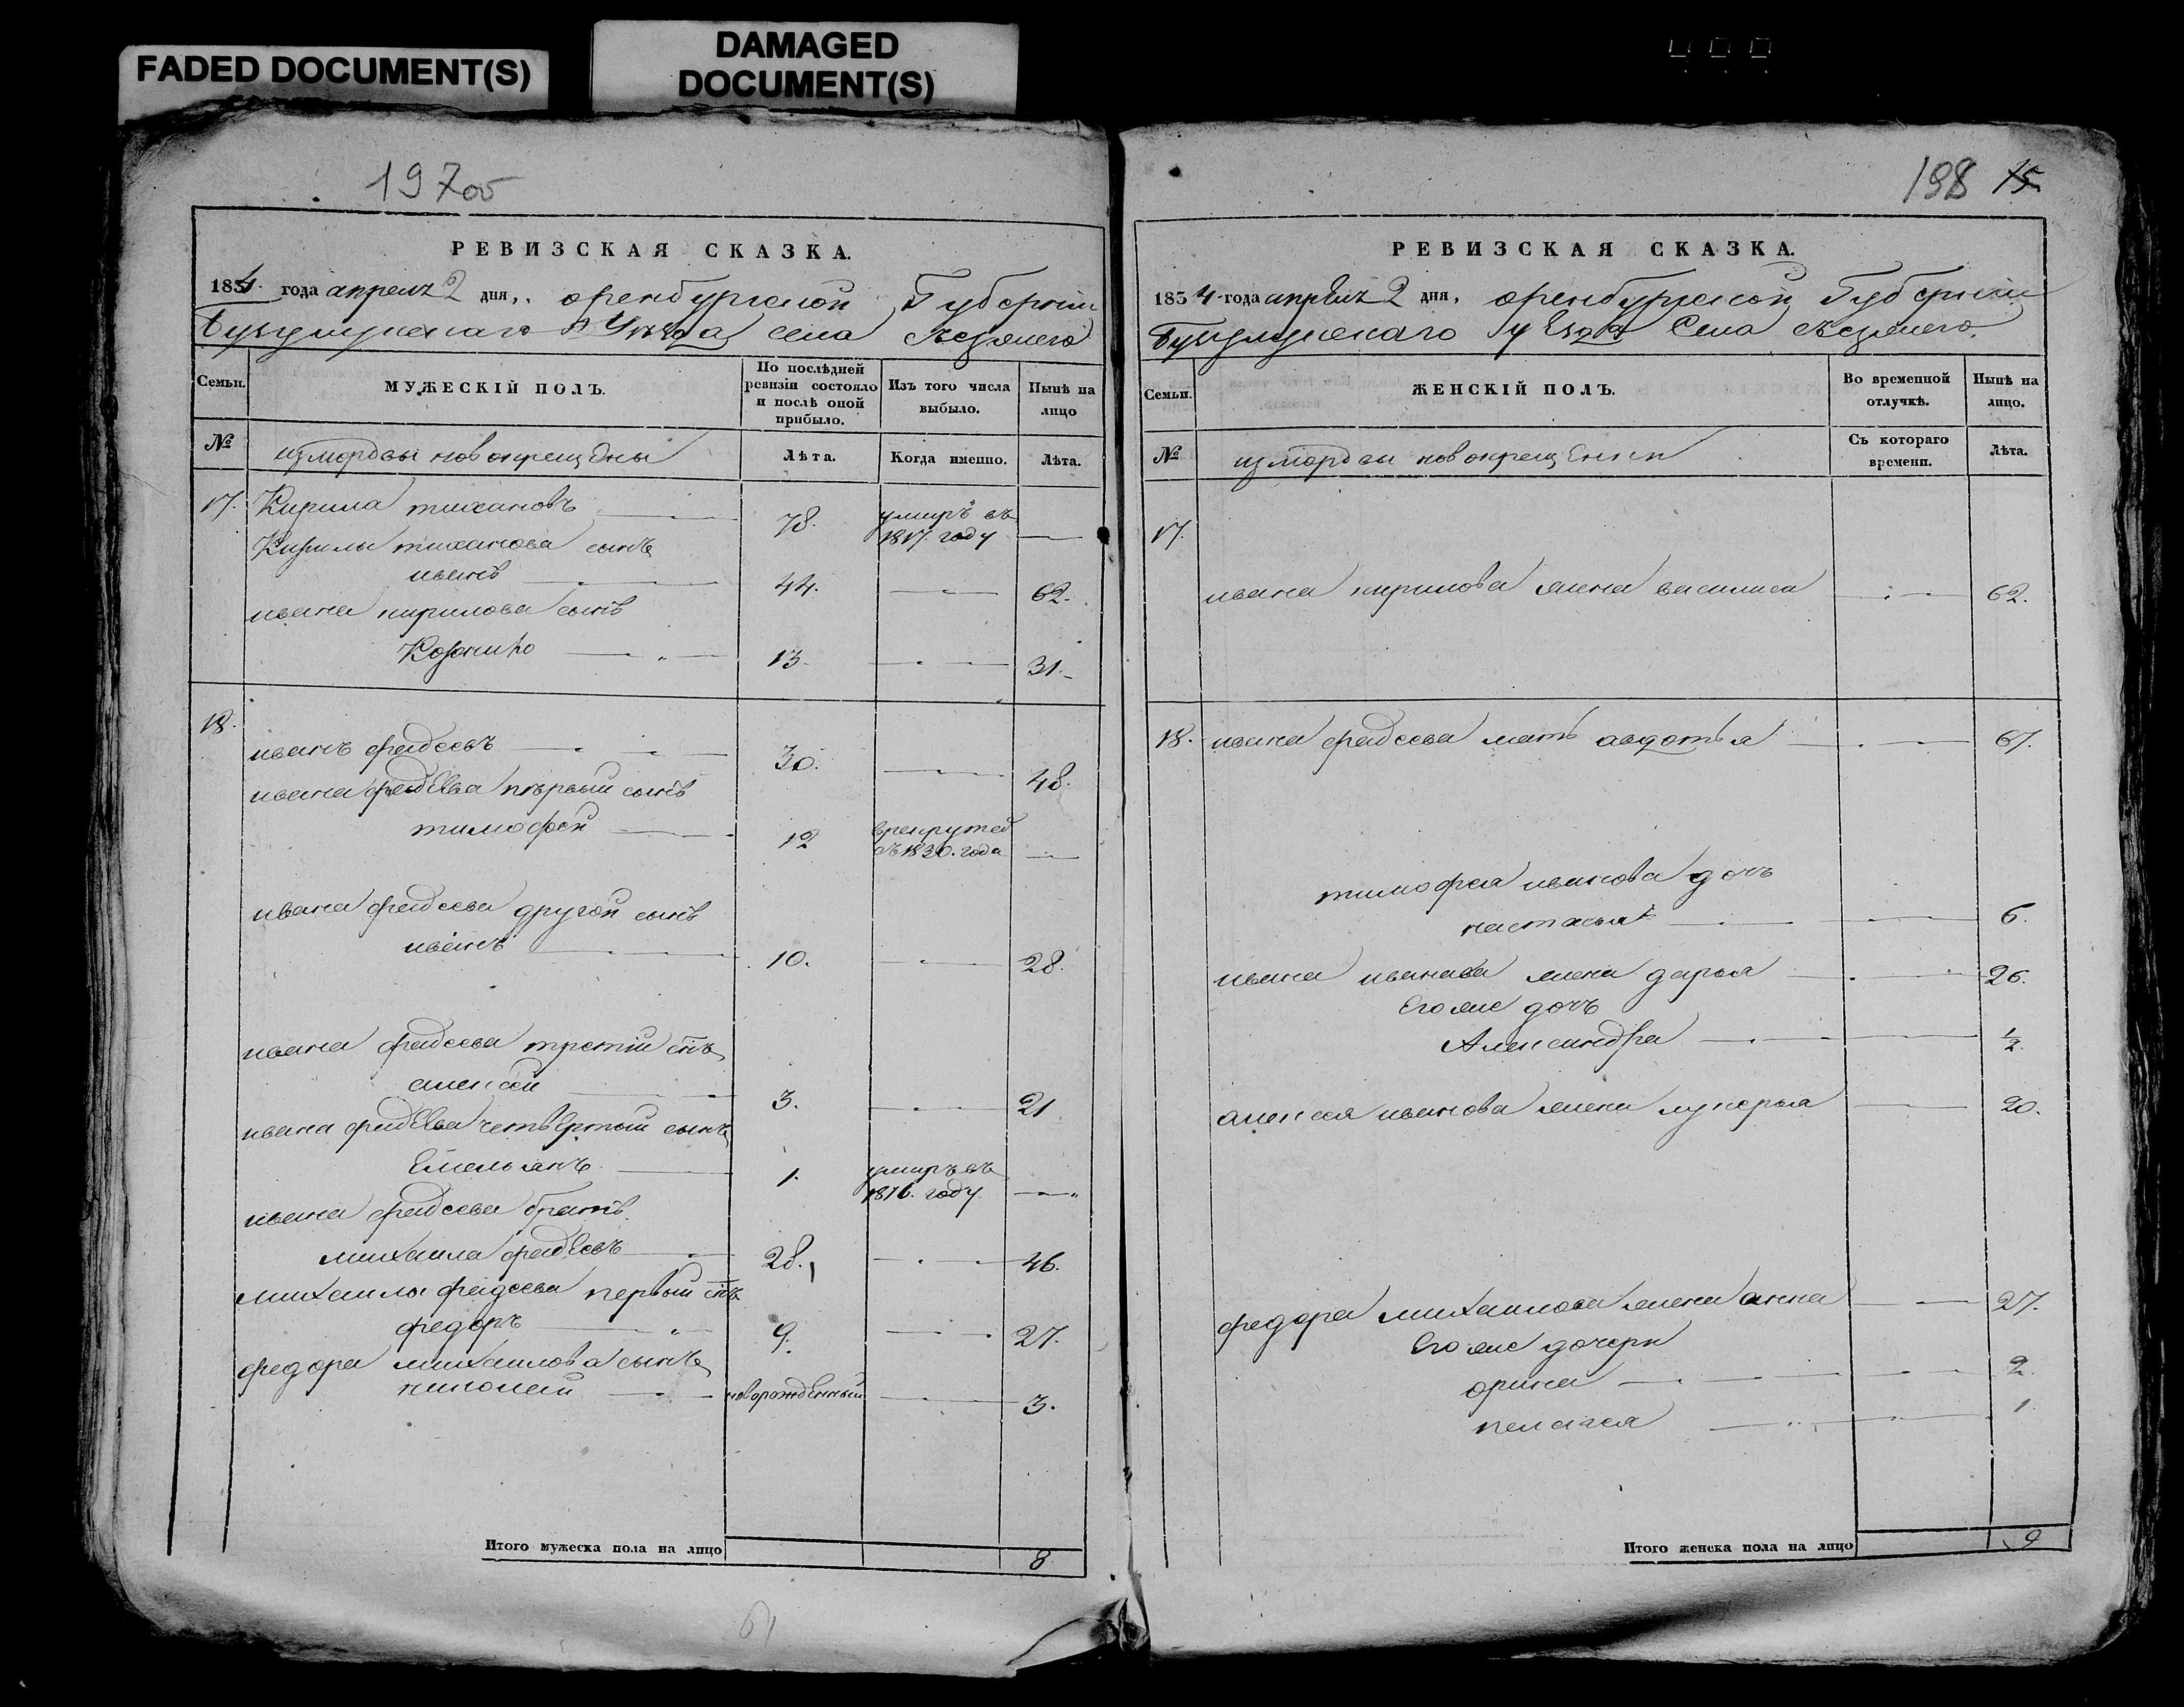 FADED DOCUMENT(S)
DAMAGED
DOCUMENT(S)
197об
РЕВИЗСКАЯ СКАЗКА.
1834 года апреля 2 дня, оренбургской Губернии
Бугульминскаго Уѣзда села
Семьи.
МУЖЕСКІЙ ПОЛЪ.
По послѣдней ревизіи состояло и послѣ оной прибыло.
Изъ того числа выбыло.
Нынѣ на лицо
№
измордвы новокрещены
Лѣта.
Когда именно.
Лѣта.
17. Кирила тихановъ 78. умиръ въ 1817. году
Кирилы тиханова сынъ
иванъ 44. 62.
ивана кирилова сынъ
13. 31.
18.
иванъ фадеевъ 30. 48.
ивана фадеева первый сынъ
тимофей 12 врекруте съ 1830. года
ивана фадеева другой сынъ
иванъ 10. 28.
ивана фадеева третий снъ
алексей 3. 21
ивана фадеева четвертый сынъ
Емельянъ 1. умиръ въ 1816. году
ивана фадеева братъ
михаила фадеевъ 28. 46.
михаилы фадеева первый снъ
федоръ 9. 27.
федора михаилова сынъ
николай новорожденный 3.
Итого мужеска пола на лицо 8
198 15
РЕВИЗСКАЯ СКАЗКА.
1834 года апреля 2 дня, оренбургской Губернии
уезда Села
Семьи.
ЖЕНСКІЙ ПОЛЪ.
Во временной отлучкѣ.
Нынѣ на лицо.
№
измордвы новокрещенки
Съ котораго времени.
Лѣта.
17.
ивана кирилова жена василиса 62.
18. ивана фадеева мать авдотья 67.
тимофея иванова дочь
настасья 6.
ивана иванова жена дарья 26.
Его же дочь
Александра 1/2.
алексея иванова жена лукерья 20.
федора михаилова жена анна 27.
Его же дочери
орина 2.
пелагея 1.
Итого женска пола на лицо 9